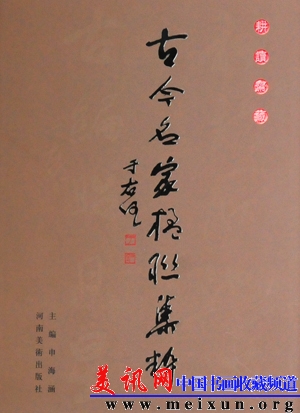 耕广斋藏
古今名家楹联集粹
于右任
主编申海涵
河南美術出版社
美讯网
中国书画收藏频道
www.meixun.org